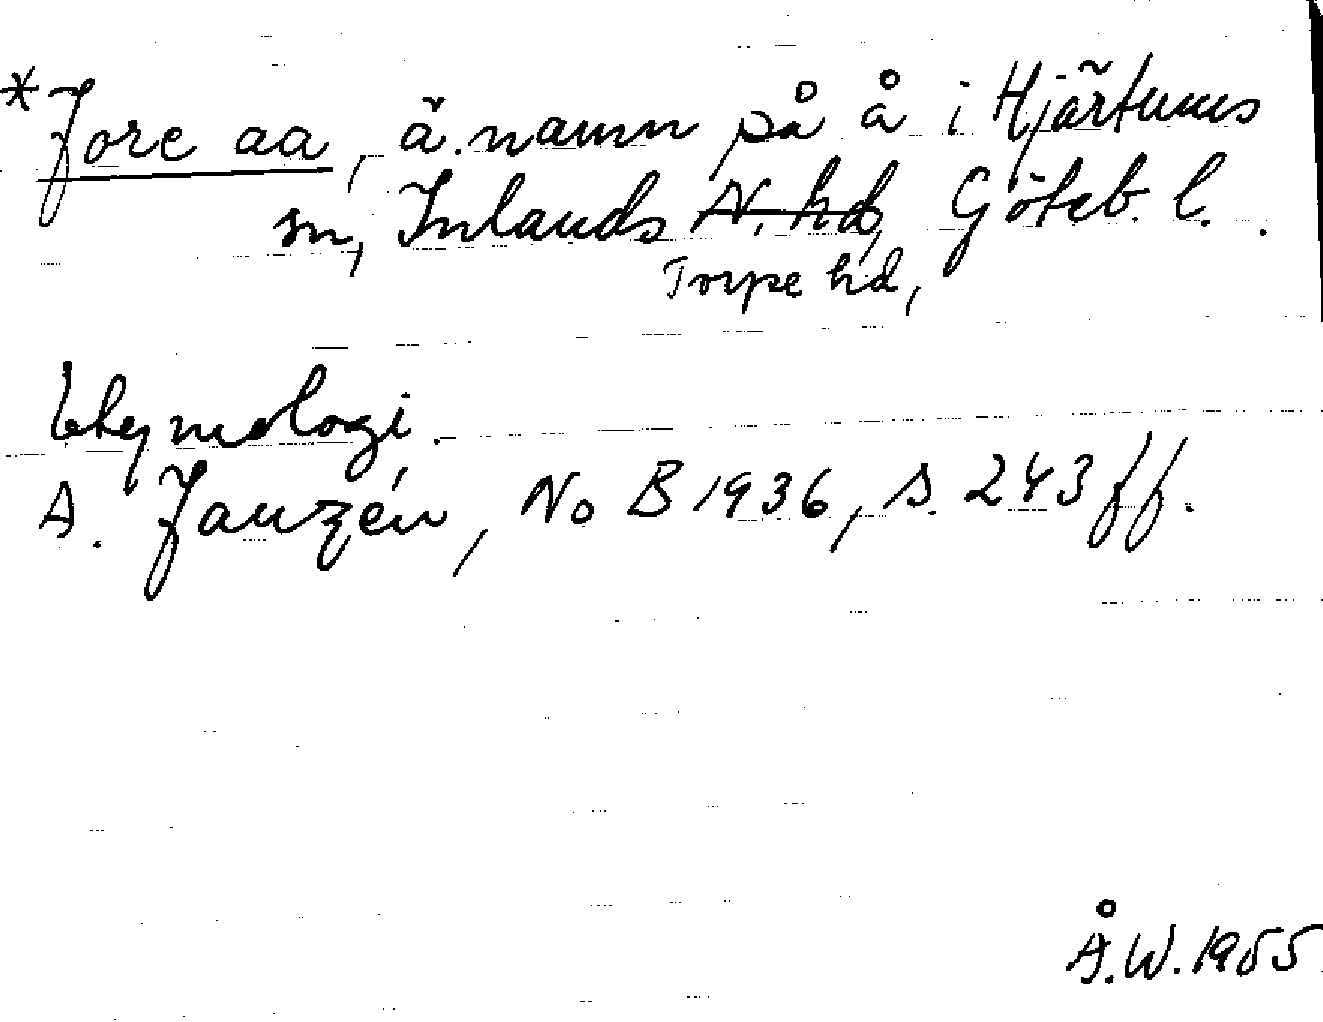 *Jore aa, ä. namn på å i Hjärtums
sn, Inlands N. hd, Göteb. l.
Torpe hd,
Etymologi
A. Janzén, NoB 1936, s. 243 ff.
Å.W. 1955